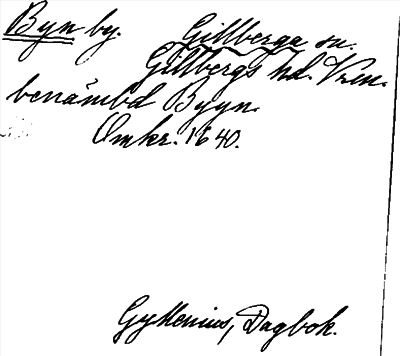 Byn by. Gillberga sn.
Gillbergs hd. Vrml.
benämbd Byyn.
Omkr. 1640.
Gyllenius, Dagbok.